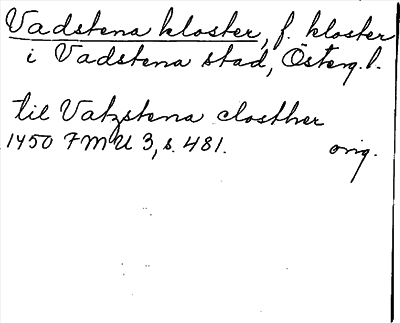 Vadstena kloster, f. kloster
i Vadstena stad, Österg.l.
til Vatzstena closther
1450 FMU 3, s. 481. orig.